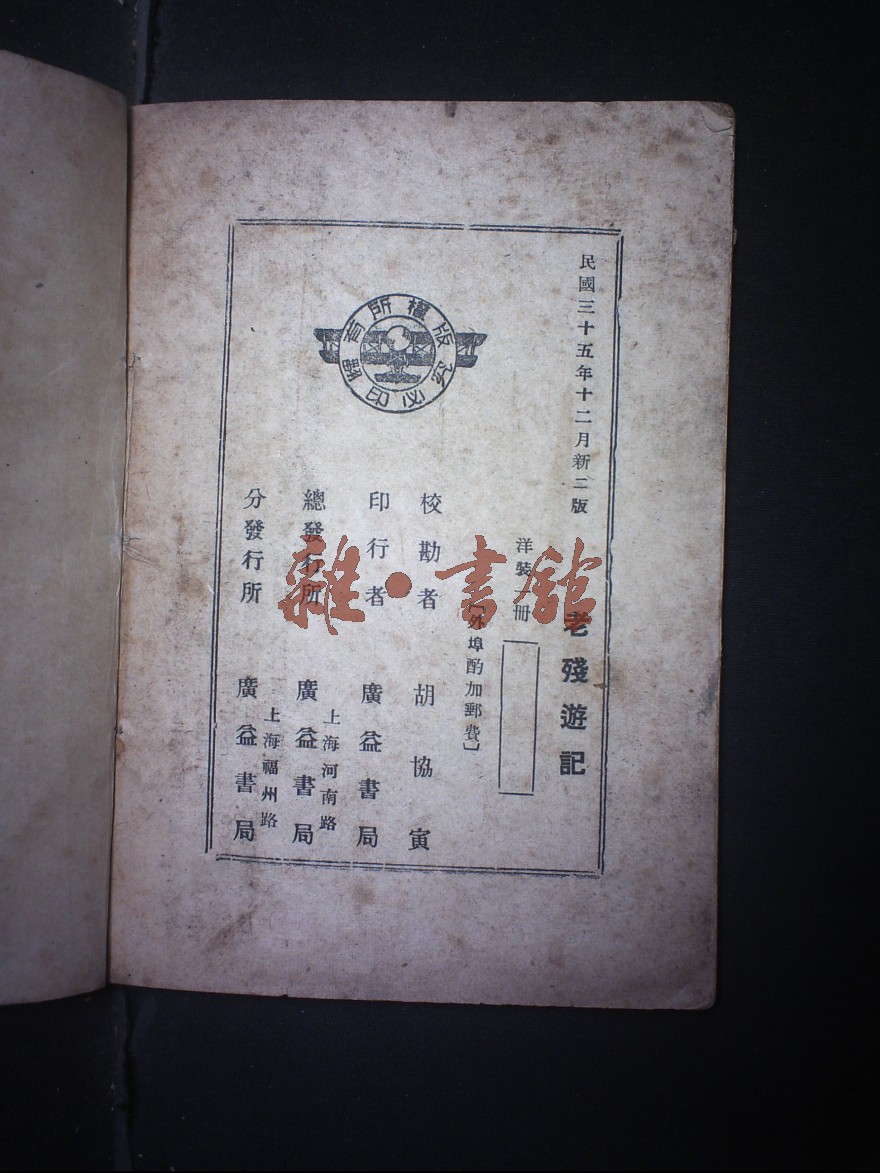 民國三十五年十二月新二版
老殘遊記
洋裝一冊
［外埠酌加郵費］
校勘者 胡協寅
印行者 廣益書局
總發行所 上海河南路 廣益書局
分發行所 上海福州路 廣益書局
版權所有
翻印必究
雜·書館